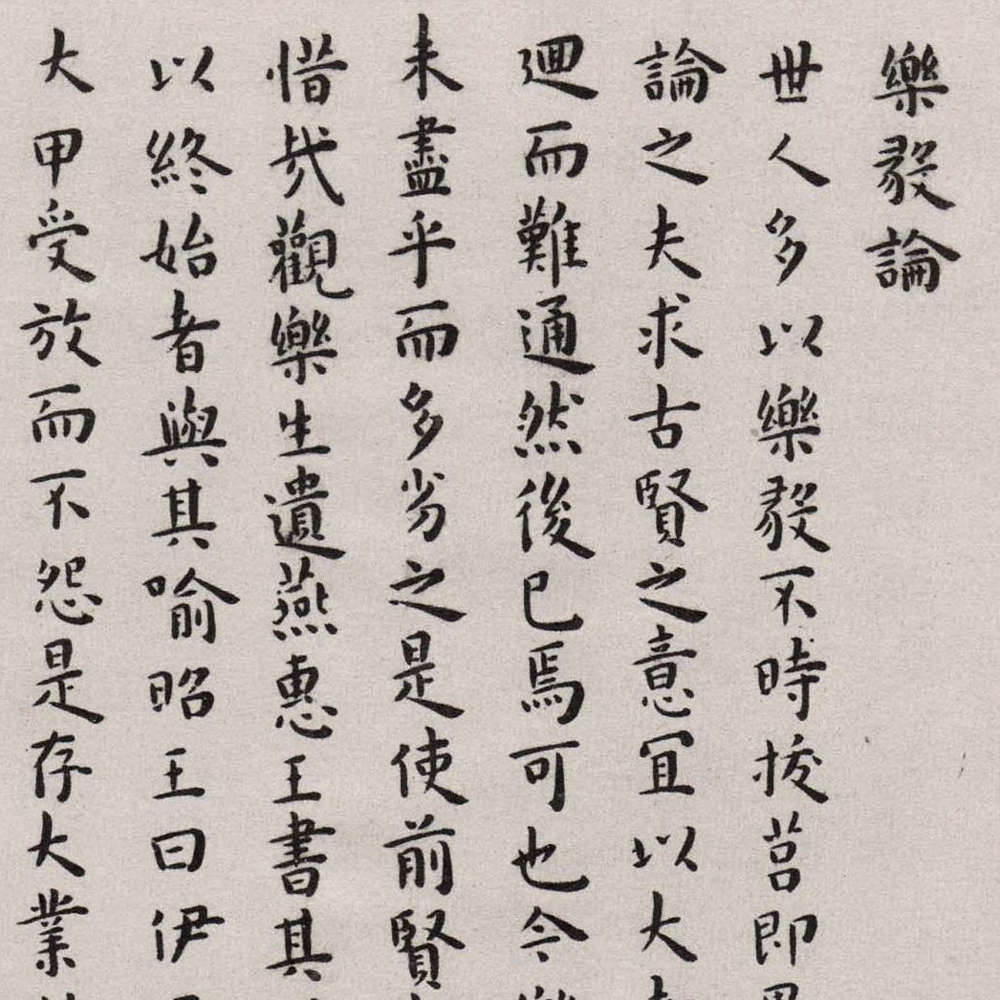 樂毅論
世人多以樂毅不時拔莒即墨
論之夫求古賢之意宜以大
迴而難通然後已焉可也今樂
未盡乎而多劣之是使前賢
惜哉觀樂生遺燕惠王書其
以終始者與其喻昭王曰伊
大甲受放而不怨是存大業